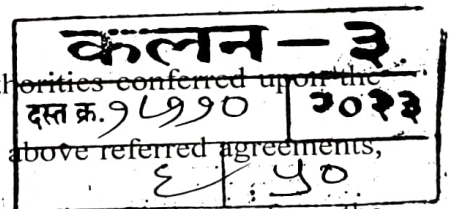 कलन - ३
horities conferred upon the
दस्त क्र. १५११० २०२३
above referred agreements,
६ ५०